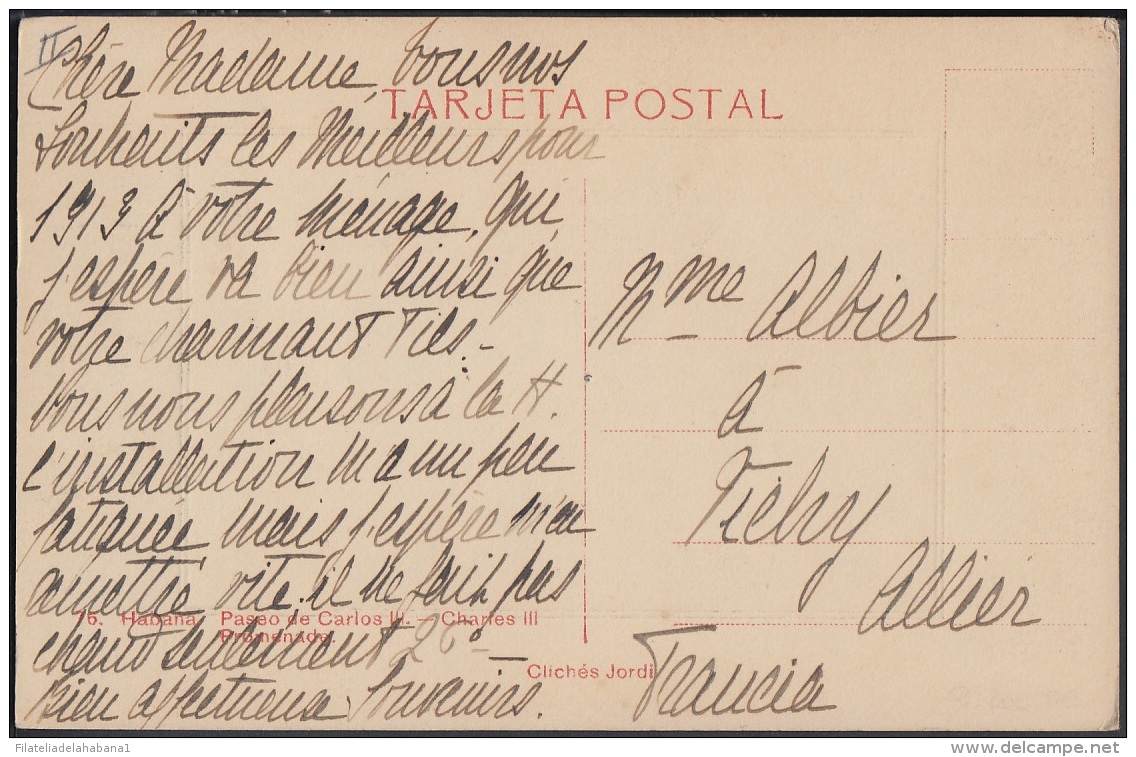 II
Chère Madame, tous nos
TARJETA POSTAL
Souhaits les Meilleurs pour
1913 à votre ménage, qui,
j'espère va bien ainsi que
votre charmant Fils -
Nous nous plaisons à la H.
l'installation m'a un peu
fatiguée, mais j'espère m'en
remettre vite, il ne fait pas
76. Habana. Paseo de Carlos III. — Charles III
Promenade.
chaud seulement 26°
Bien affectueux Souvenirs.
Mme Albier
à
Vichy
Allier
Clichés Jordi
Francia
Filateliadelahabana1
www.delcampe.net